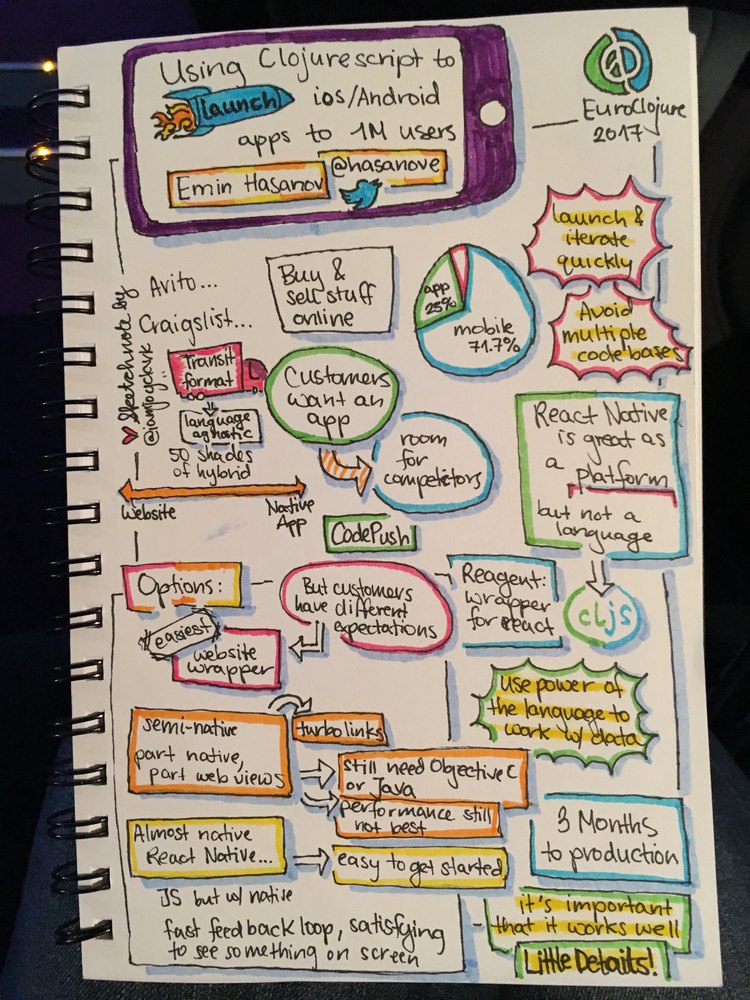 Using Clojurescript to
launch ios/Android
apps to 1M users
Emin Hasanov
@hasanove
EuroClojure
2017
launch &
iterate
quickly
Avoid
multiple
code bases
Avito...
Craigslist...
Buy &
sell stuff
online
app
25%
mobile
71.7%
Sketchnote by
@iamjoyclark
Transit
format
language
agnostic
Customers
want an
app
room
for
competitors
50 shades
of hybrid
Website
Native
App
CodePush
React Native
is great as
a platform
but not a
language
cljs
Options:
easiest
website
wrapper
But customers
have different
expectations
Reagent:
wrapper
for react
Use power of
the language to
work w/ data
semi-native
part native,
part web views
turbolinks
still need Objective C
or Java
performance still
not best
Almost native
React Native...
easy to get started
JS but w/ native
fast feedback loop, satisfying
to see something on screen
3 Months
to production
it's important
that it works well
Little Details!